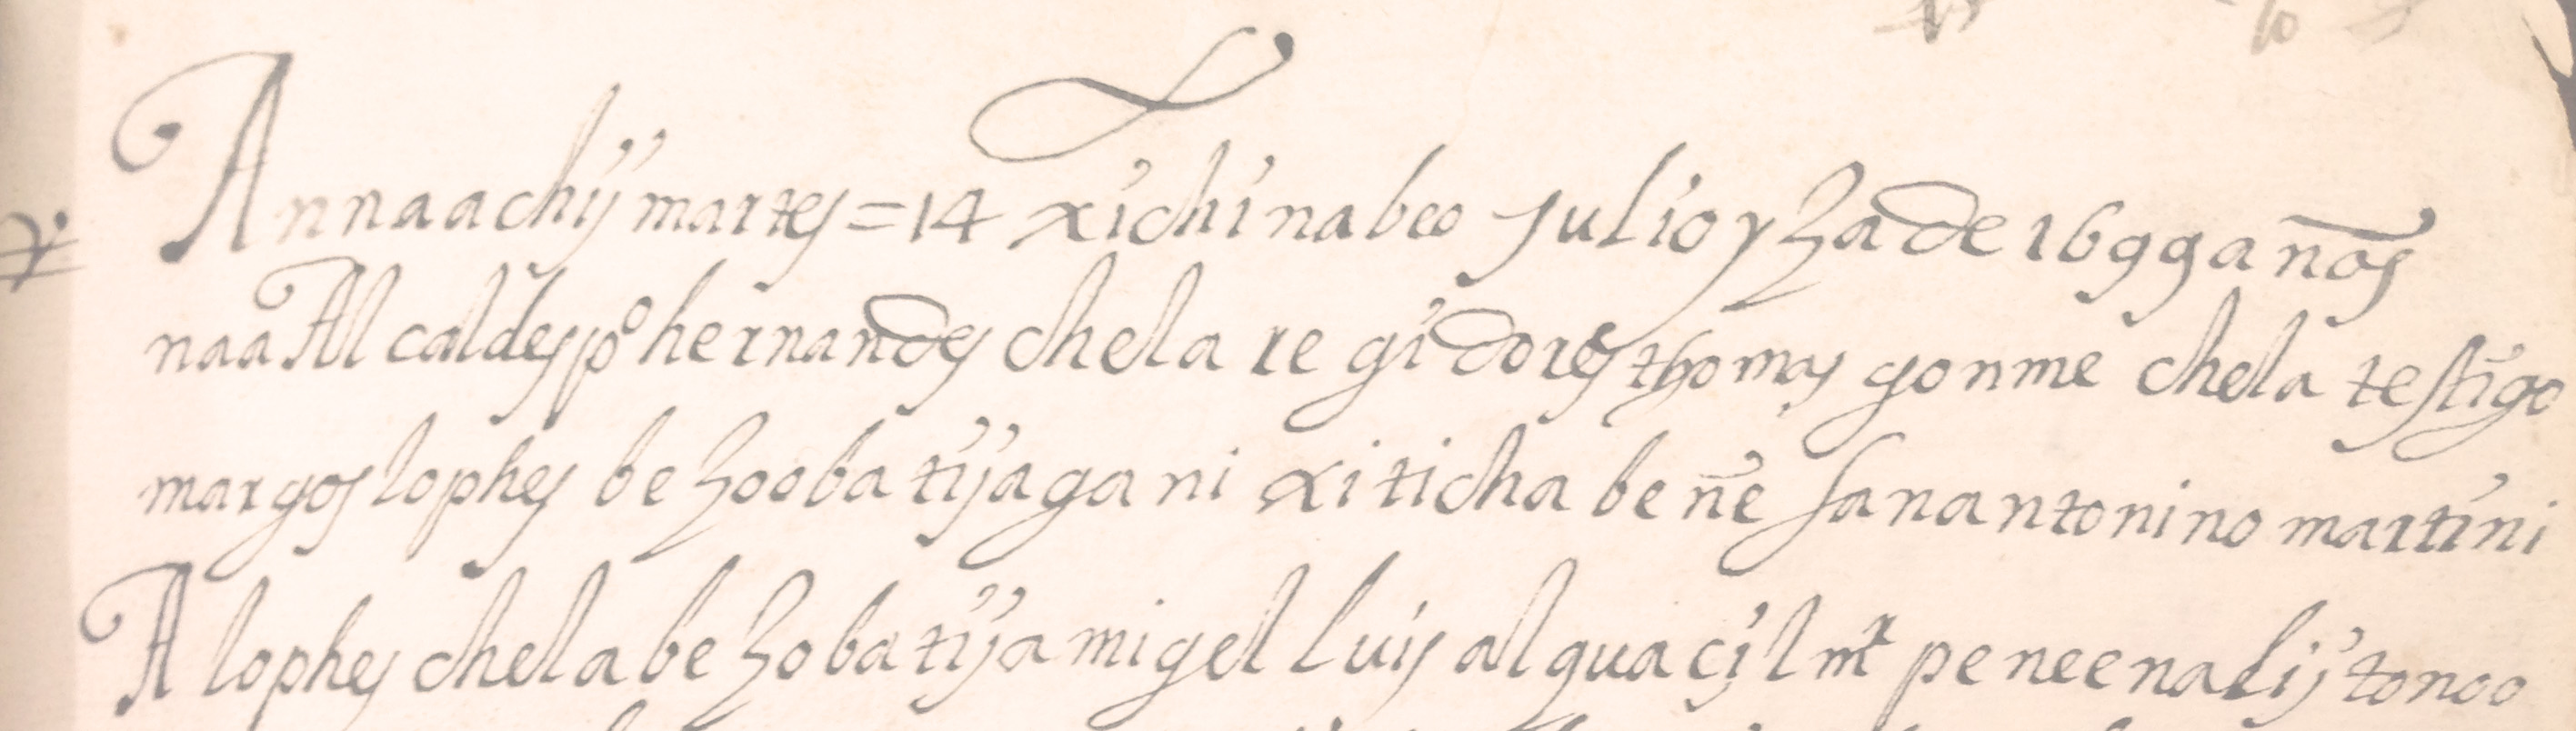 Annaachij martes = 14 xichinabeo Julio yzade 1699 años
naa Alcaldes po hernandes chela regidores thomas gonme chela testigo
margos lophes bezoobatijaga ni xiticha beñe San antonino martini
A lophes chela bezobatija migel luis alguaçil mr peneenalij tonoo